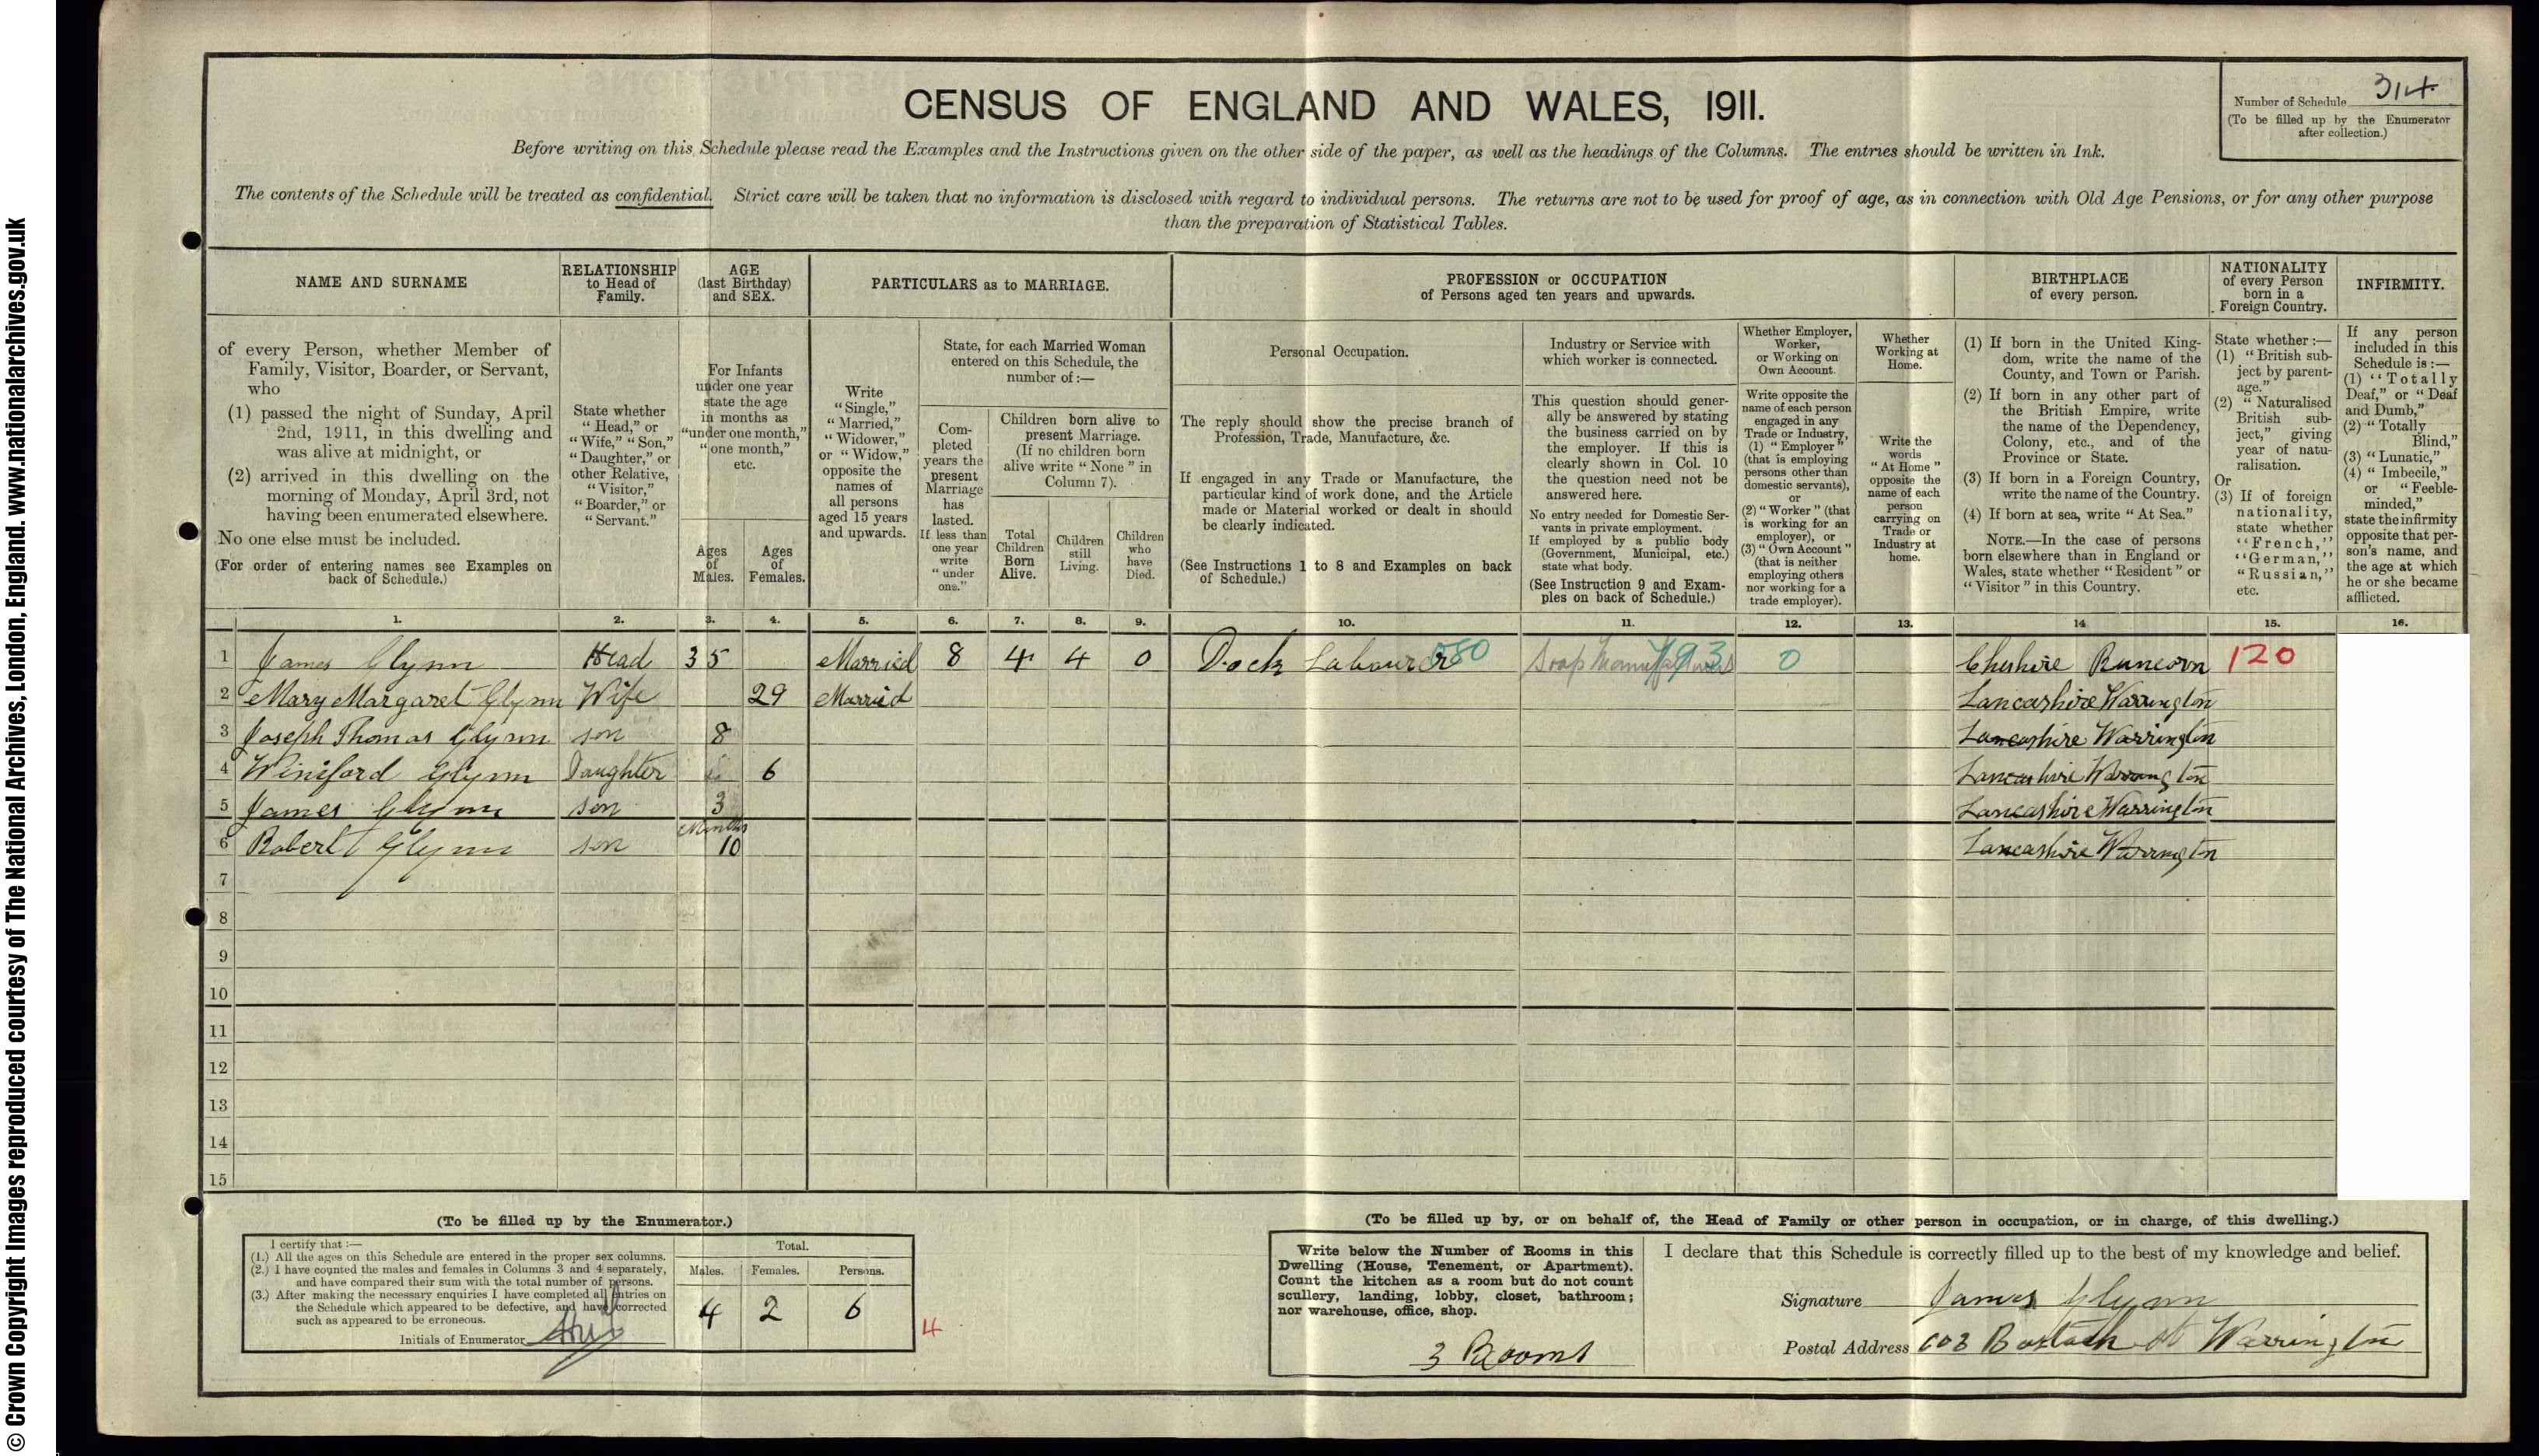 © Crown Copyright Images reproduced courtesy of The National Archives, London, England. www.nationalarchives.gov.uk
CENSUS OF ENGLAND AND WALES, 1911.
Number of Schedule 314
(To be filled up by the Enumerator
after collection.)
Before writing on this Schedule please read the Examples and the Instructions given on the other side of the paper, as well as the headings of the Columns. The entries should be written in Ink.
The contents of the Schedule will be treated as confidential. Strict care will be taken that no information is disclosed with regard to individual persons. The returns are not to be used for proof of age, as in connection with Old Age Pensions, or for any other purpose
than the preparation of Statistical Tables.
NAME AND SURNAME
of every Person, whether Member of
Family, Visitor, Boarder, or Servant,
who
(1) passed the night of Sunday, April
2nd, 1911, in this dwelling and
was alive at midnight, or
(2) arrived in this dwelling on the
morning of Monday, April 3rd, not
having been enumerated elsewhere.
No one else must be included.
(For order of entering names see Examples on
back of Schedule.)
RELATIONSHIP
to Head of
Family.
State whether
"Head," or
"Wife," "Son,"
"Daughter," or
other Relative,
"Visitor,"
"Boarder," or
"Servant."
AGE
(last Birthday)
and SEX.
For Infants
under one year
state the age
in months as
"under one month,"
"one month,"
etc.
Ages
of
Males.
Ages
of
Females.
PARTICULARS as to MARRIAGE.
Write
"Single,"
"Married,"
"Widower,"
or "Widow,"
opposite the
names of
all persons
aged 15 years
and upwards.
State, for each Married Woman
entered on this Schedule, the
number of :—
Com-
pleted
years the
present
Marriage
has
lasted.
If less than
one year
write
"under
one."
Children born alive to
present Marriage.
(If no children born
alive write "None" in
Column 7).
Total
Children
Born
Alive.
Children
still
Living.
Children
who
have
Died.
PROFESSION or OCCUPATION
of Persons aged ten years and upwards.
Personal Occupation.
The reply should show the precise branch of
Profession, Trade, Manufacture, &c.
If engaged in any Trade or Manufacture, the
particular kind of work done, and the Article
made or Material worked or dealt in should
be clearly indicated.
(See Instructions 1 to 8 and Examples on back
of Schedule.)
Industry or Service with
which worker is connected.
This question should gener-
ally be answered by stating
the business carried on by
the employer. If this is
clearly shown in Col. 10
the question need not be
answered here.
No entry needed for Domestic Ser-
vants in private employment.
If employed by a public body
(Government, Municipal, etc.)
state what body.
(See Instruction 9 and Exam-
ples on back of Schedule.)
Whether Employer,
Worker,
or Working on
Own Account.
Write opposite the
name of each person
engaged in any
Trade or Industry,
(1) "Employer"
(that is employing
persons other than
domestic servants),
or
(2) "Worker" (that
is working for an
employer), or
(3) "Own Account"
(that is neither
employing others
nor working for a
trade employer).
Whether
Working at
Home.
Write the
words
"At Home"
opposite the
name of each
person
carrying on
Trade or
Industry at
home.
BIRTHPLACE
of every person.
(1) If born in the United King-
dom, write the name of the
County, and Town or Parish.
(2) If born in any other part of
the British Empire, write
the name of the Dependency,
Colony, etc., and of the
Province or State.
(3) If born in a Foreign Country,
write the name of the Country.
(4) If born at sea, write "At Sea."
NOTE.—In the case of persons
born elsewhere than in England or
Wales, state whether "Resident" or
"Visitor" in this Country.
NATIONALITY
of every Person
born in a
Foreign Country.
State whether :—
(1) "British sub-
ject by parent-
age."
(2) "Naturalised
British sub-
ject," giving
year of natu-
ralisation.
Or
(3) If of foreign
nationality,
state whether
"French,"
"German,"
"Russian,"
etc.
INFIRMITY.
If any person
included in this
Schedule is :—
(1) "Totally
Deaf," or "Deaf
and Dumb,"
(2) "Totally
Blind,"
(3) "Lunatic,"
(4) "Imbecile,"
or "Feeble-
minded,"
state the infirmity
opposite that per-
son's name, and
the age at which
he or she became
afflicted.
1. 2. 3. 4. 5. 6. 7. 8. 9. 10. 11. 12. 13. 14 15. 16.
1 James Glynn Head 35 Married 8 4 4 0 Dock Labourer 580 Soap 793 0 Cheshire Runcorn 120
2 Mary Margaret Glynn Wife 29 Married Lancashire Warrington
3 Joseph Thomas Glynn son 8 Lancashire Warrington
4 Winiford Glynn Daughter 6 Lancashire Warrington
5 James Glynn son 3 Lancashire Warrington
6 Robert Glynn son Months 10 Lancashire Warrington
7
8
9
10
11
12
13
14
15
(To be filled up by the Enumerator.)
I certify that :—
(1.) All the ages on this Schedule are entered in the proper sex columns.
(2.) I have counted the males and females in Columns 3 and 4 separately,
and have compared their sum with the total number of persons.
(3.) After making the necessary enquiries I have completed all entries on
the Schedule which appeared to be defective, and have corrected
such as appeared to be erroneous.
Initials of Enumerator
Total.
Males. Females. Persons.
4 2 6
4
(To be filled up by, or on behalf of, the Head of Family or other person in occupation, or in charge, of this dwelling.)
Write below the Number of Rooms in this
Dwelling (House, Tenement, or Apartment).
Count the kitchen as a room but do not count
scullery, landing, lobby, closet, bathroom;
nor warehouse, office, shop.
3 Rooms
I declare that this Schedule is correctly filled up to the best of my knowledge and belief.
Signature James Glynn
Postal Address st Warrington